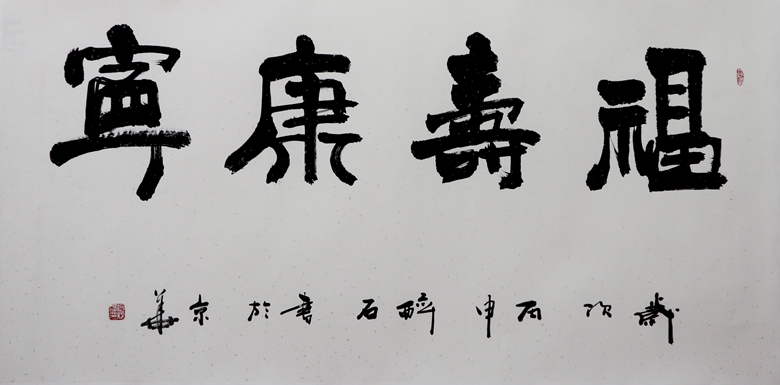 福壽康寧
歲次丙申醉石書於京華